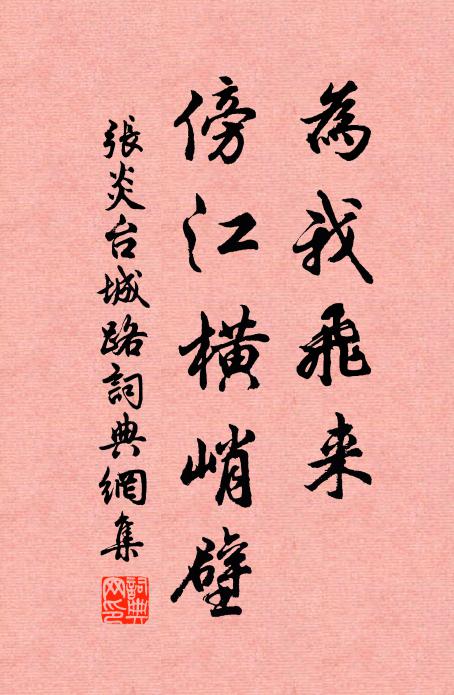 為我飛来
傍江橫峭壁
張炎台城路詞典網集
詞典网印